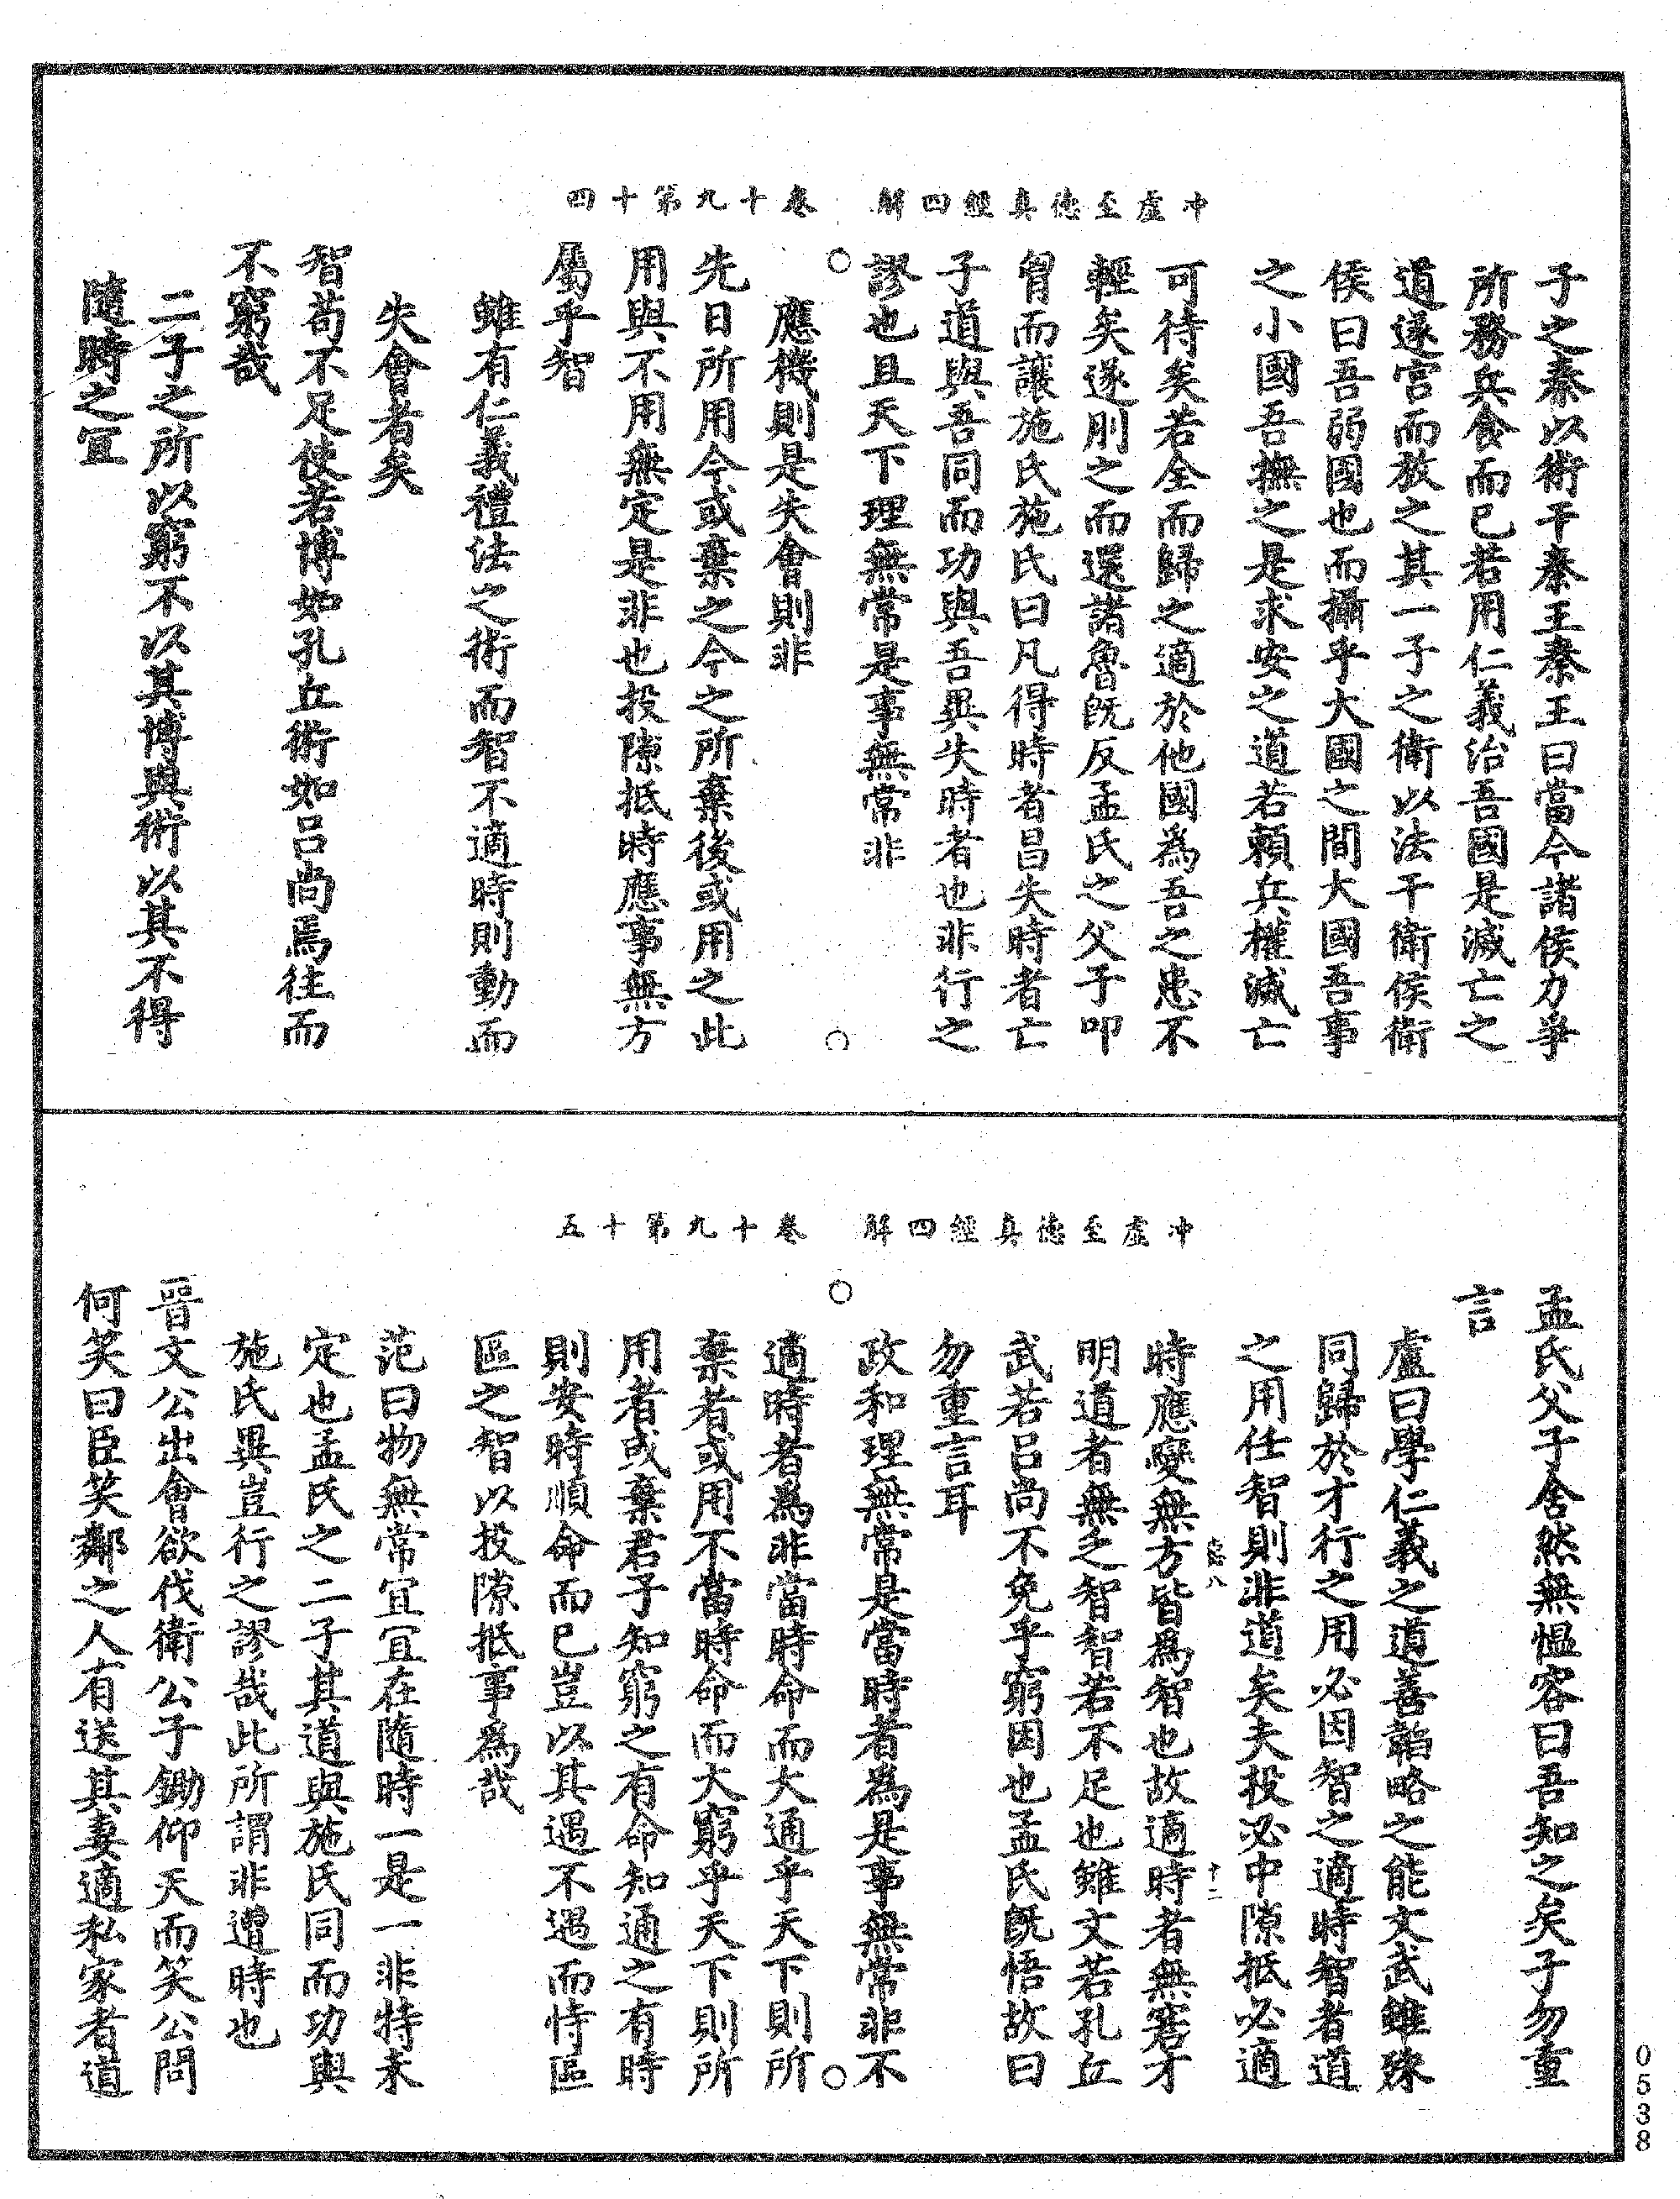 冲虛至德真經四解　卷十九第十四
子之秦以術干秦王秦王曰當今諸侯力爭
所務兵食而已若用仁義治吾國是滅亡之
道遂宮而放之其一子之衛以法干衛侯衛
侯曰吾弱國也而攝乎大國之間大國吾事
之小國吾撫之是求安之道若賴兵權滅亡
可待矣若全而歸之適於他國為吾之患不
輕矣遂刖之而還諸魯旣反孟氏之父子叩
胷而讓施氏施氏曰凡得時者昌失時者亡
子道與吾同而功與吾異失時者也非行之
謬也且天下理無常是事無常非
應機則是失會則非
先日所用今或棄之今之所棄後或用之此
用與不用無定是非也投隙抵時應事無方
屬乎智
雖有仁義禮法之術而智不適時則動而
失會者矣
智苟不足使若博如孔丘術如吕尚焉往而
不窮哉
二子之所以窮不以其博與術以其不得
隨時之宜
冲虛至德真經四解　卷十九第十五
孟氏父子舍然無愠容曰吾知之矣子勿重
言
盧曰學仁義之道善韜略之能文武雖殊
同歸於才行之用必因智之適時智者道
之用任智則非道矣夫投必中隙抵必適
時應變無方皆爲智也故適時者無窘才
明道者無乏智智若不足也雖文若孔丘
武若吕尚不免乎窮困也孟氏旣悟故曰
勿重言耳
政和理無常是當時者為是事無常非不
適時者為非當時命而大通乎天下則所
棄者或用不當時命而大窮乎天下則所
用者或棄君子知窮之有命知通之有時
則安時順命而已豈以其遇不遇而恃區
區之智以投隙抵事爲哉
范曰物無常宜宜在隨時一是一非特未
定也孟氏之二子其道與施氏同而功與
施氏異豈行之謬哉此所謂非遭時也
晉文公出會欲伐衛公子鋤仰天而笑公問
何笑曰臣笑鄰之人有送其妻適私家者道
十二
0538